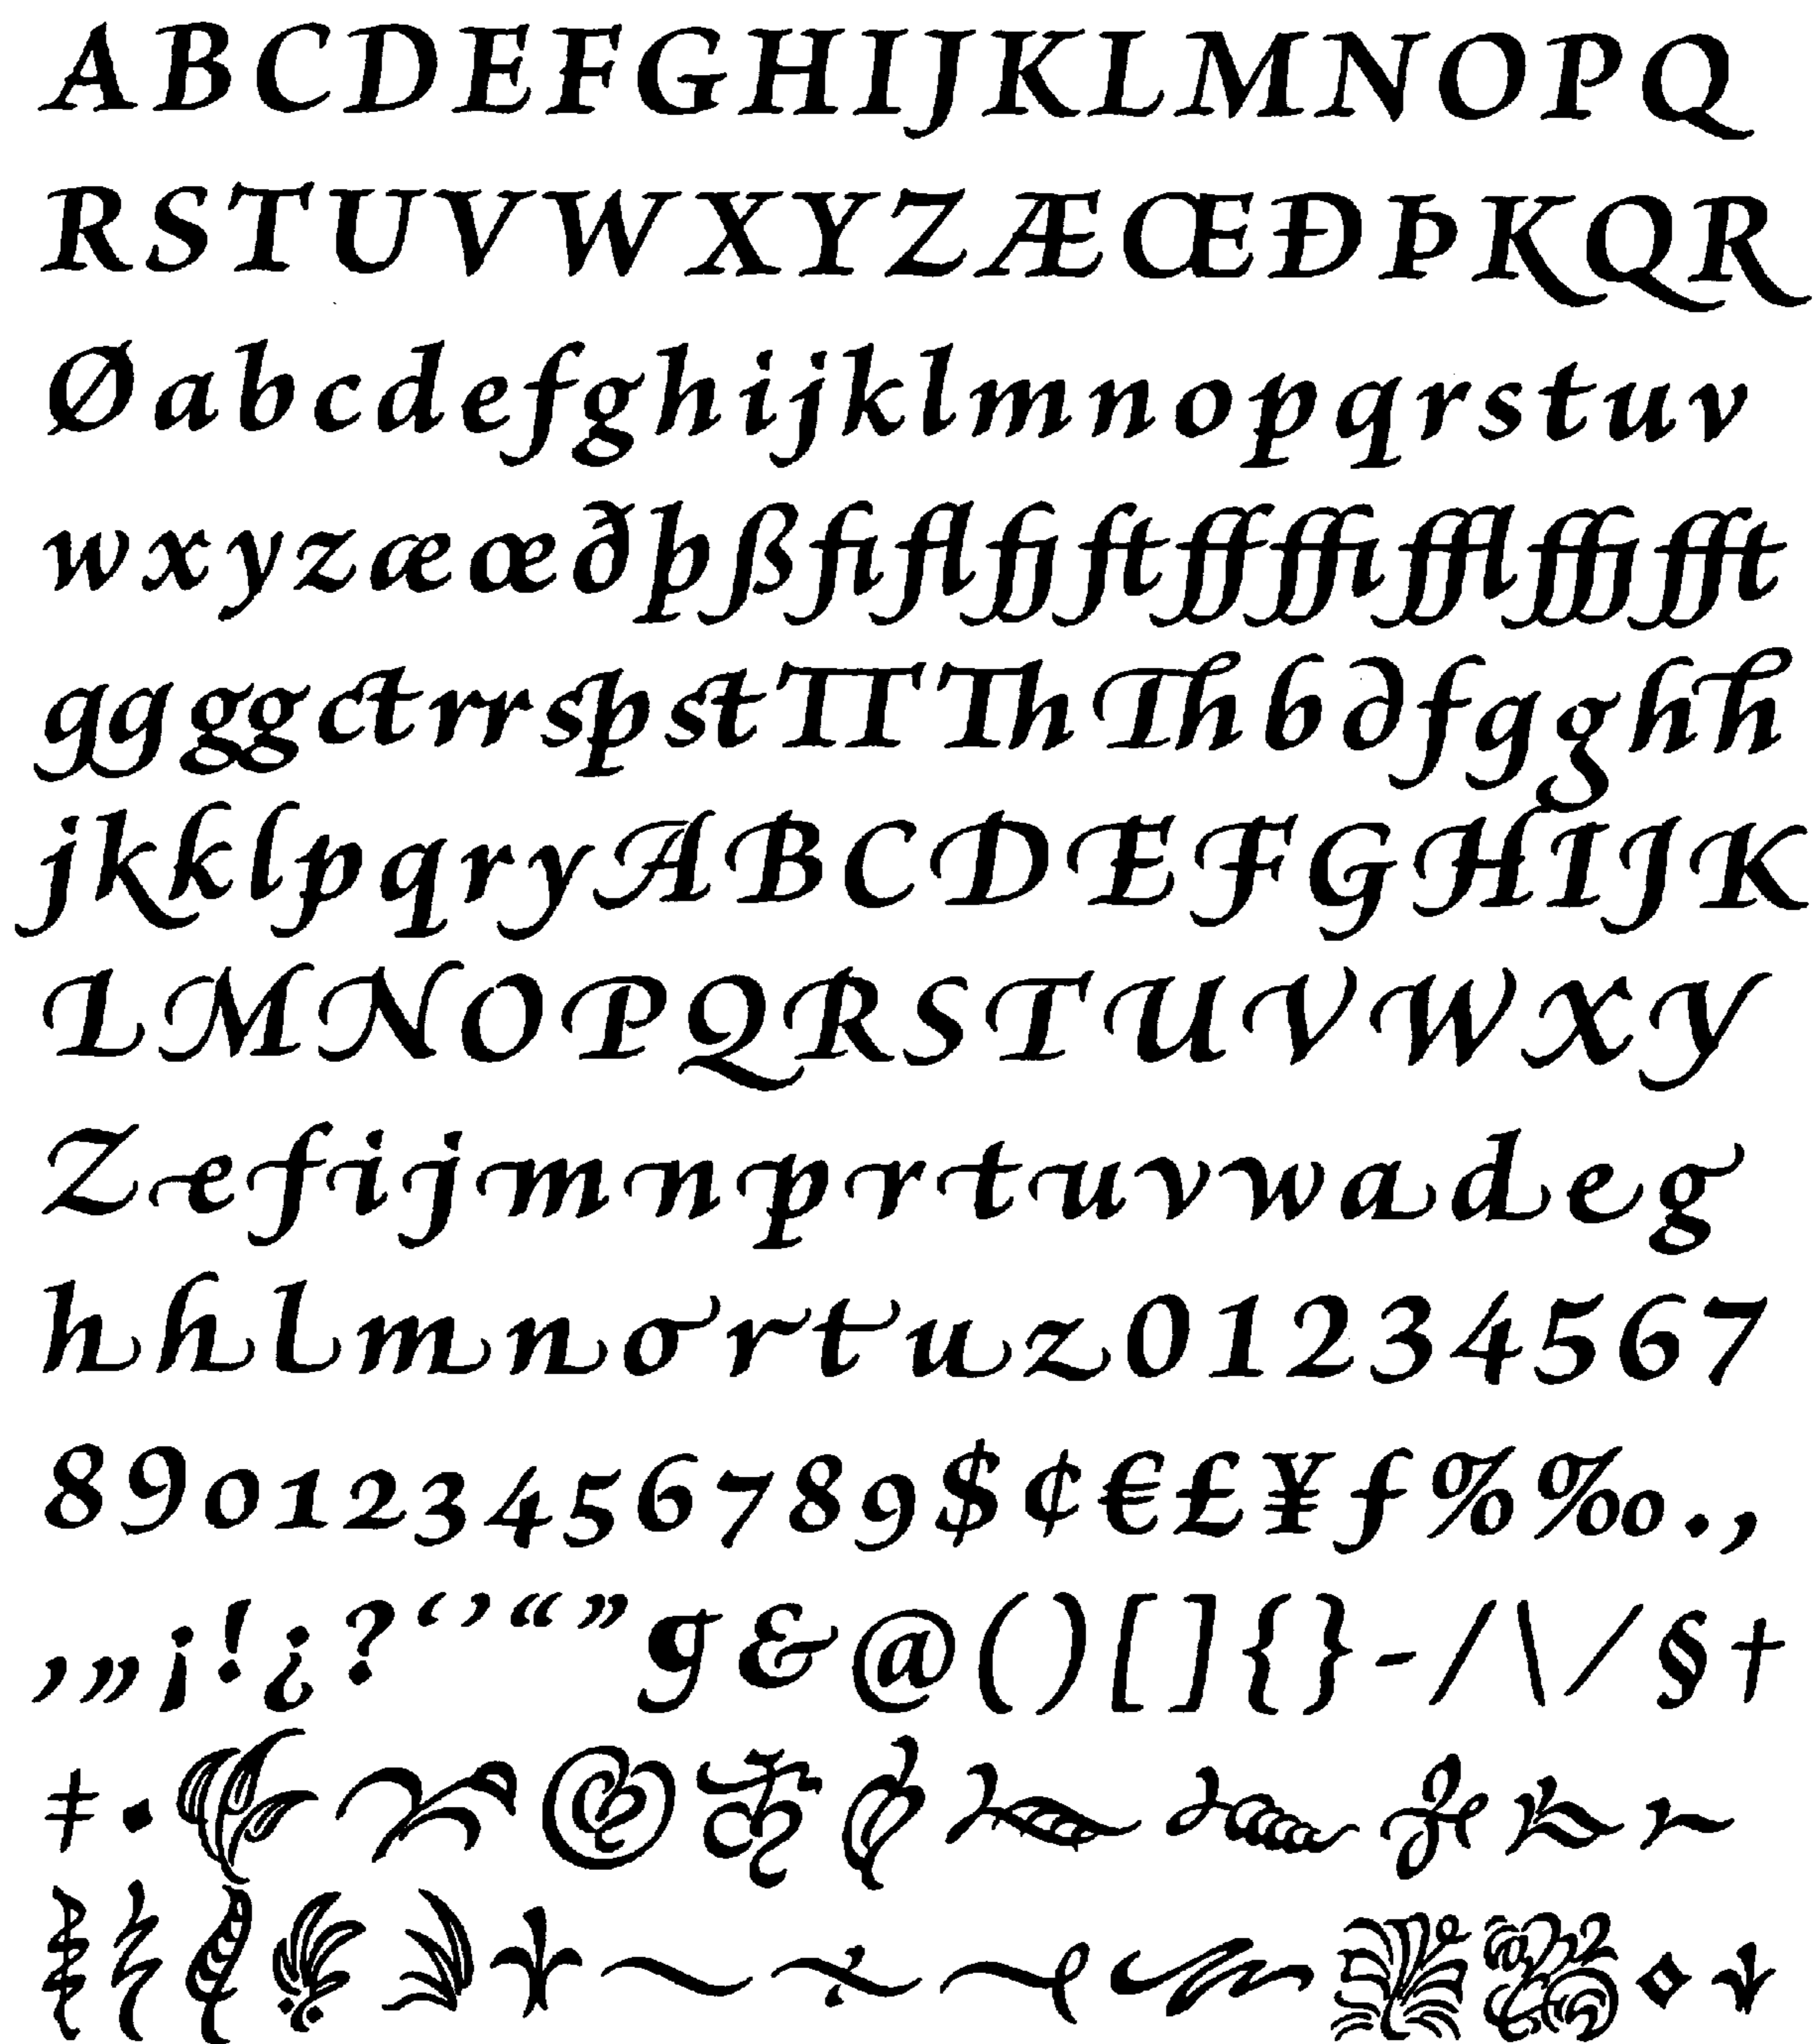 A B C D E F G H I J K L M N O P Q
R S T U V W X Y Z Æ Œ Ð Þ K Q R
Ø a b c d e f g h i j k l m n o p q r s t u v
w x y z æ œ ð þ ß fi fl fj ft ff ffi ffl ffj fft
gg gg ct rr sp st TT Th Th b ∂ f g g h h
j k k l p q r y A B C D E F G H I J K
L M N O P Q R S T U V W X Y
Z e f i j m n p r t u v w a d e g
h h l m n o r t u z 0 1 2 3 4 5 6 7
8 9 0 1 2 3 4 5 6 7 8 9 $ ¢ € £ ¥ ƒ % ‰ . ,
‚ „ ¡ ! ¿ ? ‘ ’ “ ” g & @ ( ) [ ] { } - / \ ⁄ § †
‡ ·